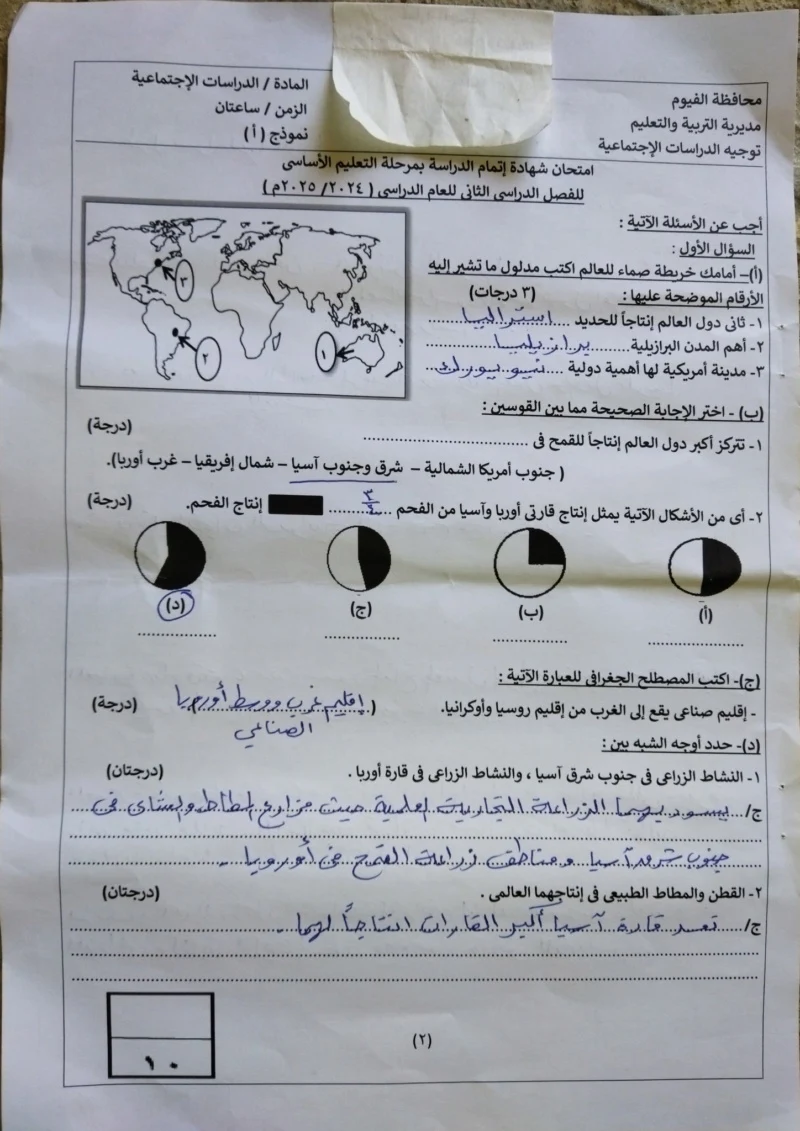 محافظة الفيوم
مديرية التربية والتعليم
توجيه الدراسات الإجتماعية
المادة / الدراسات الإجتماعية
الزمن / ساعتان
نموذج ( أ )
امتحان شهادة إتمام الدراسة بمرحلة التعليم الأساسى
للفصل الدراسى الثانى للعام الدراسى ( ٢٠٢٤/ ٢٠٢٥م )
أجب عن الأسئلة الآتية :
السؤال الأول :
(أ)– أمامك خريطة صماء للعالم اكتب مدلول ما تشير إليه
الأرقام الموضحة عليها : (٣ درجات)
١- ثانى دول العالم إنتاجاً للحديد .... استراليا
٢- أهم المدن البرازيلية......... برازيليا
٣- مدينة أمريكية لها أهمية دولية .... نيويورك
٣
٢
١
(ب) - اختر الإجابة الصحيحة مما بين القوسين :
١- تتركز أكبر دول العالم إنتاجاً للقمح فى ................................ (درجة)
( جنوب أمريكا الشمالية – شرق وجنوب آسيا – شمال إفريقيا – غرب أوربا).
٢- أى من الأشكال الآتية يمثل إنتاج قارتى أوربا وآسيا من الفحم .... ٣/٤ .... إنتاج الفحم. (درجة)
(أ) (ب) (ج) (د)
(ج)- اكتب المصطلح الجغرافى للعبارة الآتية :
- إقليم صناعى يقع إلى الغرب من إقليم روسيا وأوكرانيا. ( إقليم غرب ووسط أوروبا (درجة)
الصناعي
(د)- حدد أوجه الشبه بين :
١- النشاط الزراعى فى جنوب شرق آسيا ، والنشاط الزراعى فى قارة أوربا . (درجتان)
ج/ يسود بهما الزراعة التجارية العلمية حيث مزارع المطاط والشاى فى
جنوب شرق آسيا ومناطق زراعة القمح فى أوروبا .
٢- القطن والمطاط الطبيعى فى إنتاجهما العالمى . (درجتان)
ج/ تعد قارة آسيا أكبر القارات انتاجاً لهما .
(٢)
١٠